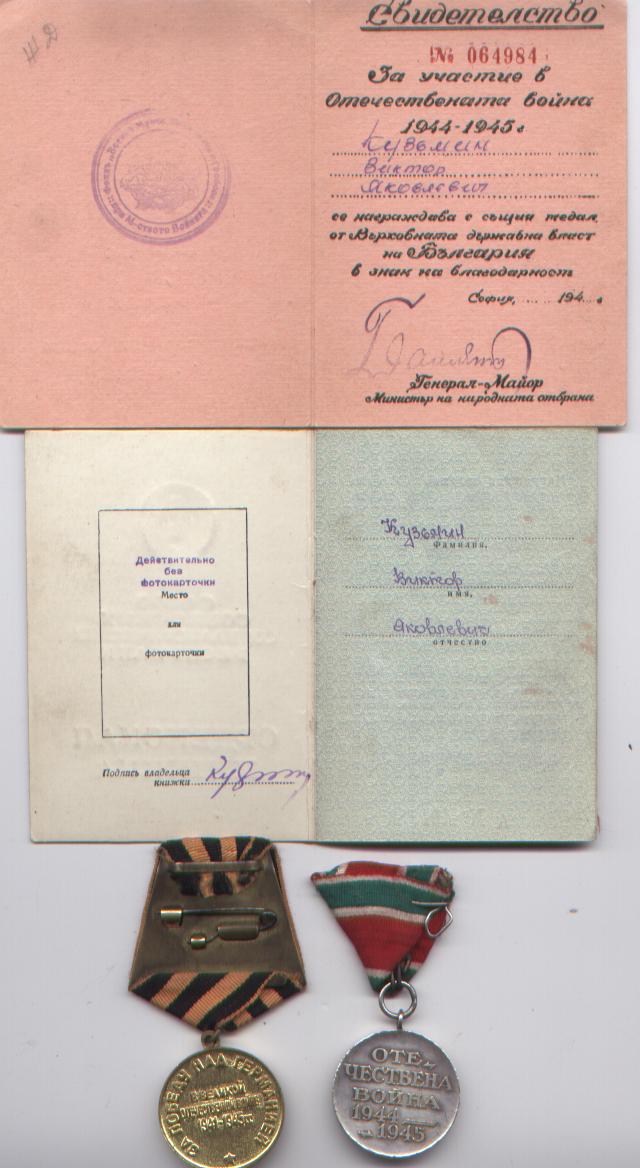 Свидетелство
№ 064984
За участие в
Отечествената война
1944-1945 г
Кузьмин
Виктор
Яковлевич
се награждава с същия медал
от Върховната държавна власт
на България
в знак на благодарност
София, ...... 194... г
Генерал-Майор
Министър на народната отбрана
Действительно
без
фотокарточки
Место
для
фотокарточки
Подпись владельца
книжки
Кузьмин
фамилия,
Виктор
имя,
Яковлевич
отчество
ЗА ПОБЕДУ НАД ГЕРМАНИЕЙ
В ВЕЛИКОЙ
ОТЕЧЕСТВЕННОЙ ВОЙНЕ
1941-1945 гг
ОТЕ-
ЧЕСТВЕНА
ВОЙНА
1944
1945